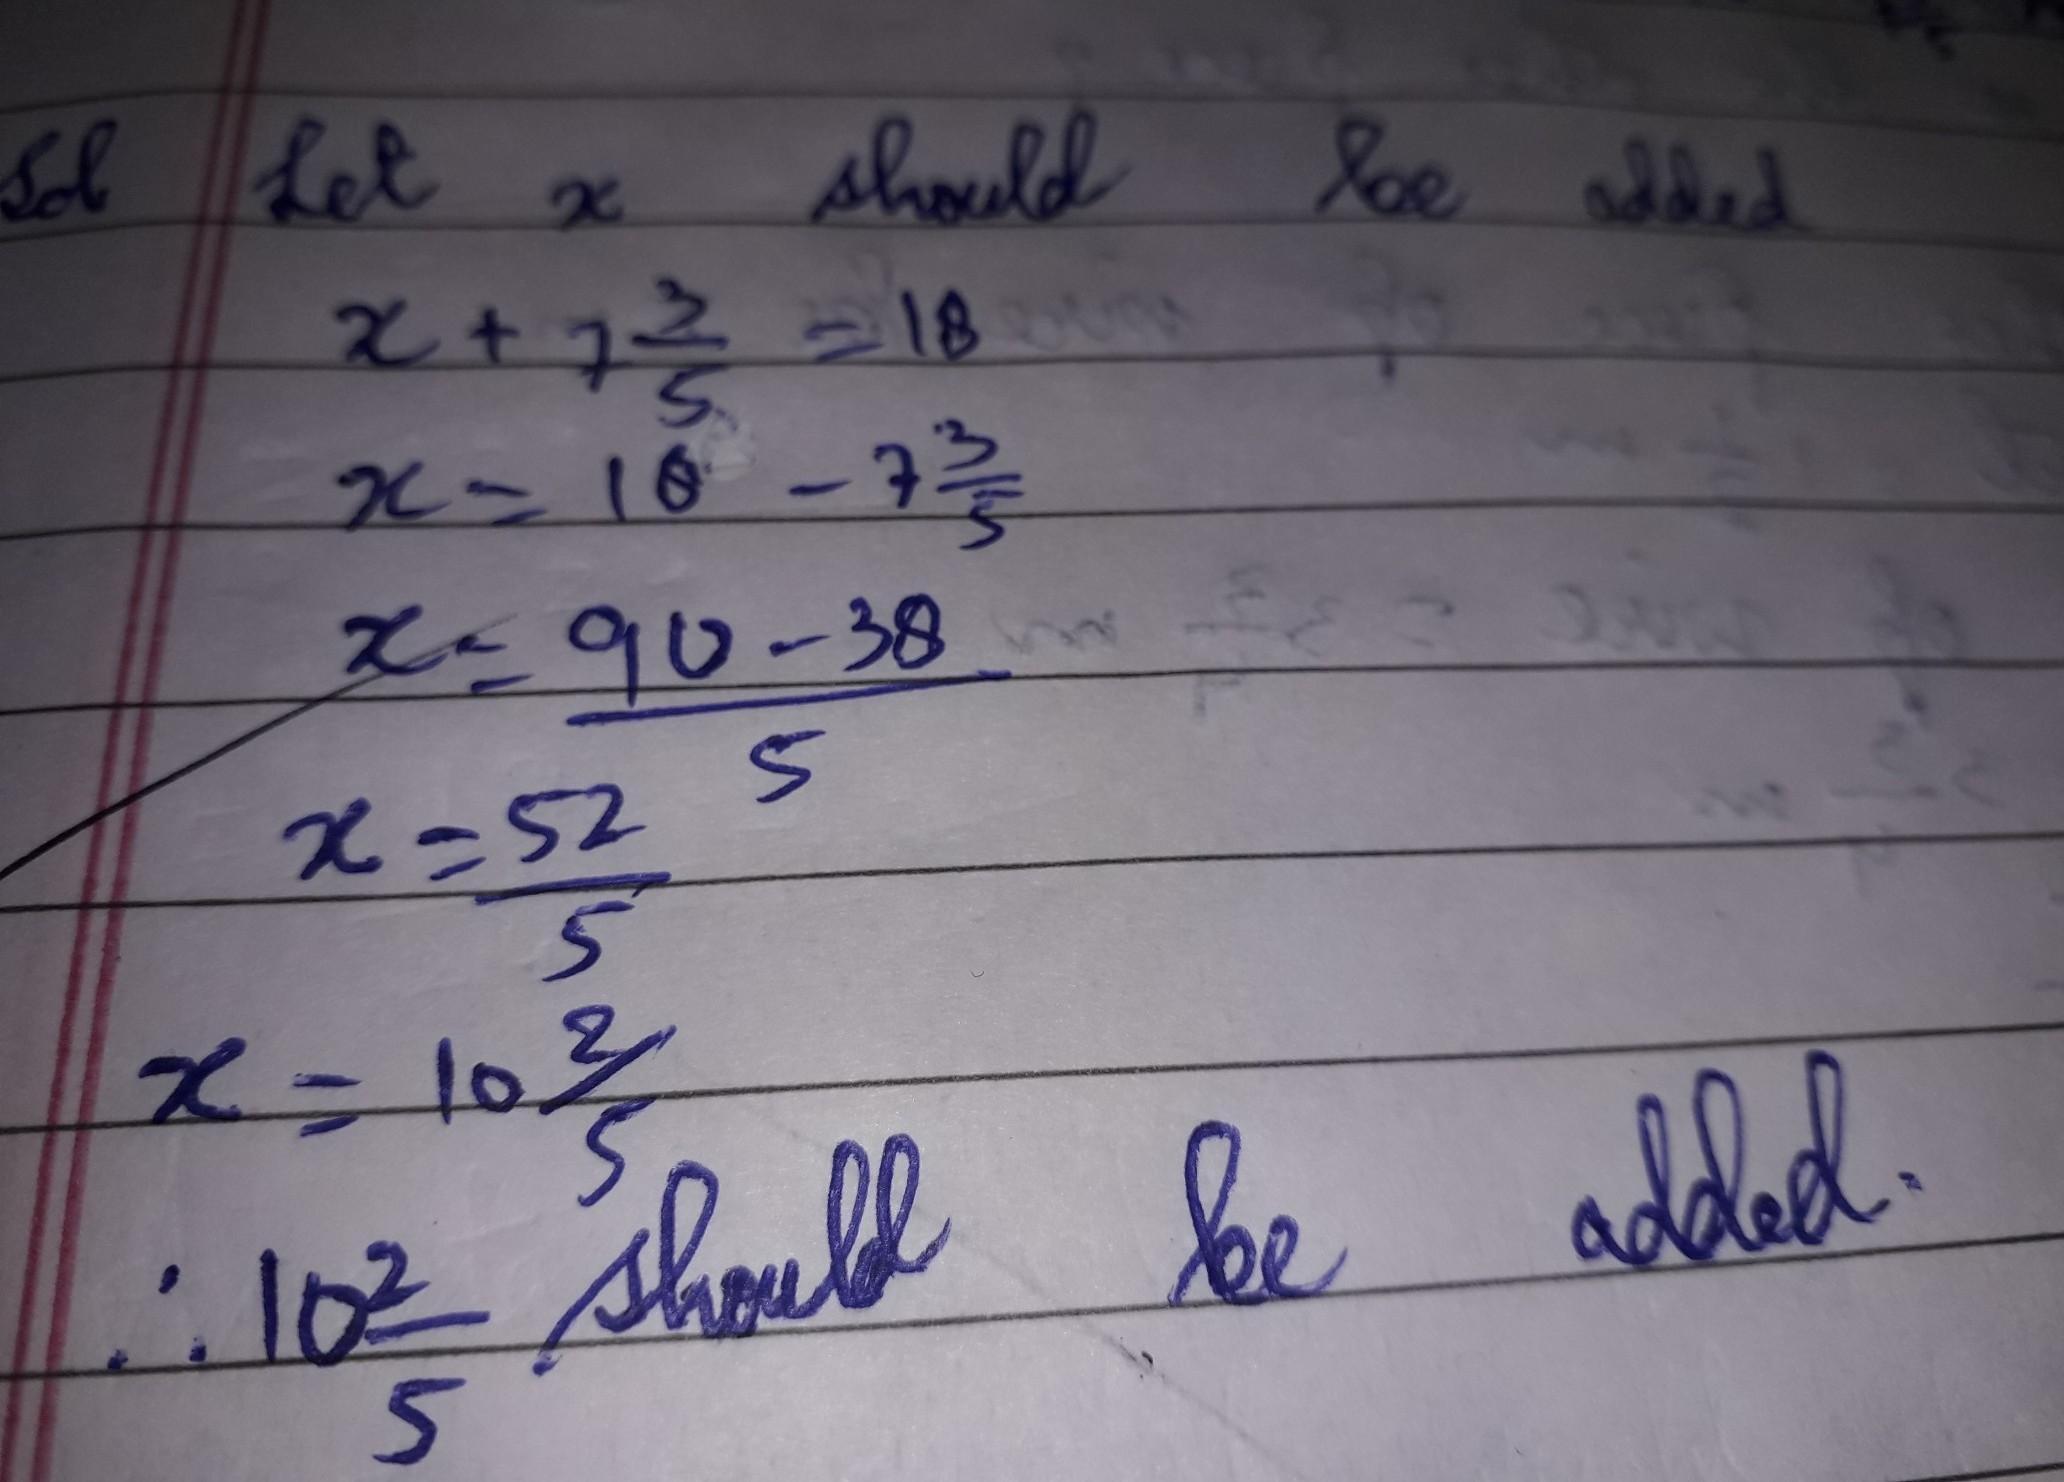 Sol Let x should be added
x + 7 3/5 = 18
x = 18 - 7 3/5
x = 90 - 38 / 5
x = 52/5
x = 10 2/5
∴ 10 2/5 should be added.